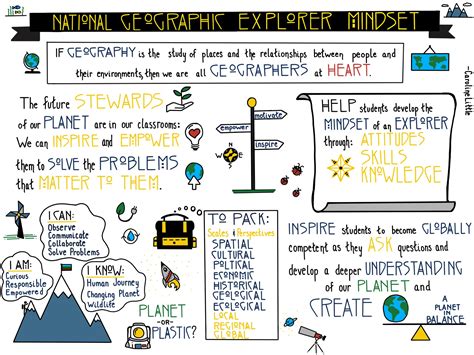 NATIONAL GEOGRAPHIC EXPLORER MINDSET
IF GEOGRAPHY is the study of places and the relationships between people and
their environments, then we are all GEOGRAPHERS at HEART.
~Caroline Little
The future STEWARDS
of our PLANET are in our classrooms:
We can INSPIRE and EMPOWER
them to SOLVE the PROBLEMS
that MATTER TO THEM.
motivate
empower
inspire
N
W
E
S
HELP students develop the
MINDSET of an EXPLORER
through: ATTITUDES
SKILLS
KNOWLEDGE
I CAN:
Observe
Communicate
Collaborate
Solve Problems
I AM:
Curious
Responsible
Empowered
I KNOW:
Human Journey
Changing Planet
Wildlife
PLANET
-or-
PLASTIC?
TO PACK:
Scales & Perspectives
SPATIAL
CULTURAL
POLITICAL
ECONOMIC
HISTORICAL
GEOLOGICAL
ECOLOGICAL
LOCAL
REGIONAL
GLOBAL
INSPIRE students to become GLOBALLY
competent as they ASK questions and
develop a deeper UNDERSTANDING
of our PLANET and
CREATE
A
PLANET
IN BALANCE